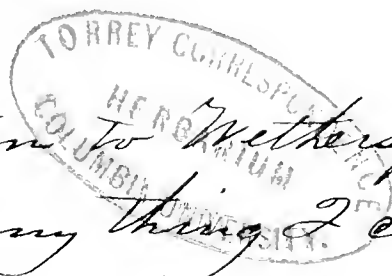 TORREY CORRESPONDENCE
HERBARIUM
COLUMBIA UNIVERSITY.
to Wethers
my thing I